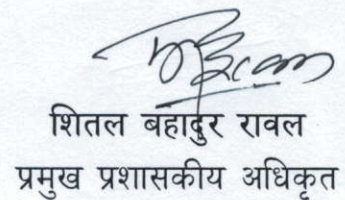 शितल बहादुर रावल
प्रमुख प्रशासकीय अधिकृत